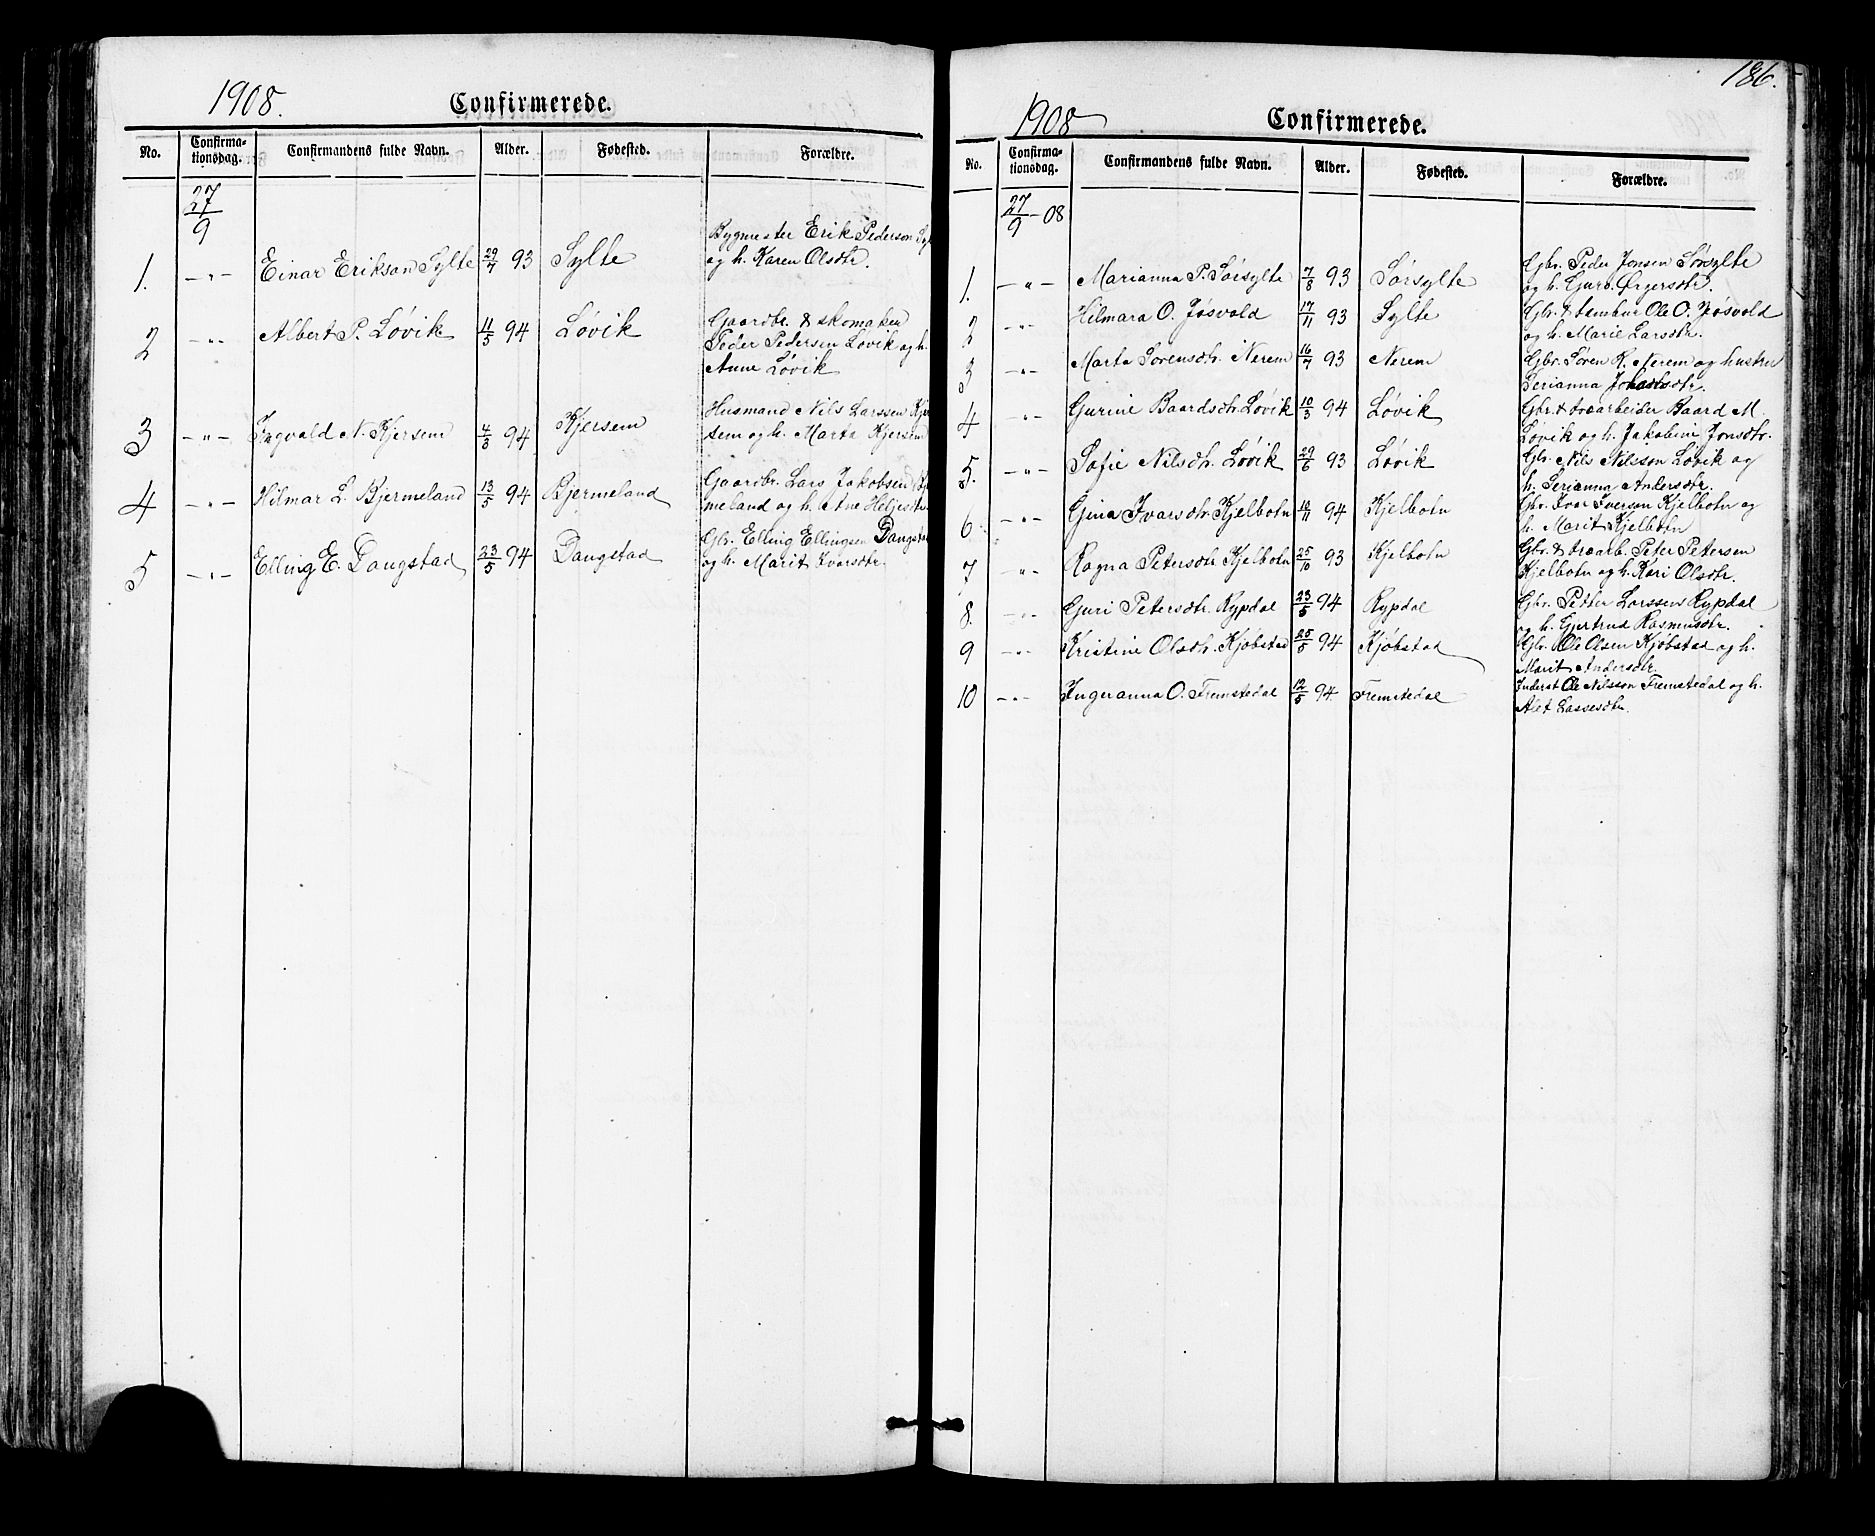 1908.
Confirmerede.
No.
Confirma-
tionsdag.
Confirmandens fulde Navn.
Alder.
Fødested.
Forældre.
27/9
Bygmester Erik Pederson
1. -"- Einar Erikson Sylte 29/7 93 Sylte og h. Karen Olsdtr.
2 -"- Albert P. Løvik 11/5 94 Løvik Gaardbr. & skomaker
Peder Pedersen Løvik og h.
Anne Løvik
3 -"- Ingvald N. Kjersem 4/3 94 Kjersem Husmand Nils Larssen Kjer
sem og h. Marta Kjersem
4 -"- Hilmar L. Bjermeland 13/5 94 Bjermeland Gaardbr. Lars Jakobsen
meland og h. Ane
5 -"- Elling E. Daugstad 23/5 94 Daugstad Gbr. Elling Ellingsen Daugstad
og h. Marit Ivarsdtr.
186.
1908
Confirmerede.
No.
Confirma-
tionsdag.
Confirmandens fulde Navn.
Alder.
Fødested.
Forældre.
27/9 - 08
1. -"- Marianna P. Sørsylte 7/8 93 Sørsylte Gbr. Peder Jonsen Sørsylte
og h. Guro
2 -"- Hilmara O. Jøsvold 17/11 93 Sylte Gbr. & tambur Ole O. Jøsvold
og h. Marie Larsdtr.
3 -"- Marta Sorensdtr. Nerem 16/7 93 Nerem Gbr. Søren K. Nerem og hustru
Serianna
4 -"- Gurine Baardsdtr. Løvik 10/3 94 Løvik Gbr. & træarbeider Baard M.
Løvik og h. Jakobine Jonsdtr.
5. -"- Sofie Nilsdtr. Løvik 29/6 93 Løvik Gbr. Nils Nilsson Løvik og
h. Serianna Andersdtr.
6 -"- Gina Ivarsdtr. Kjelbotn 16/11 94 Kjelbotn Gbr. Ivar Iverson Kjelbotn og
h. Marit Kjelbotn
7 -"- Ragna Petersdtr. Kjelbotn 25/10 93 Kjelbotn Gbr. & træarb. Peter Petersen
Kjelbotn og h. Kari Olsdtr.
8. -"- Guri Petersdtr. Rypdal 23/5 94 Rypdal Gbr. Petter Larssen Rypdal
og h. Gjertrud Rasmusdtr.
9 -"- Kristine Olsdtr. Kjøbstad 25/5 94 Kjøbstad Gbr. Ole Olsen Kjøbstad og h.
Marit Andersdtr.
10 -"- Ingeranna O. Fremstedal 12/5 94 Fremstedal Inderst Ole Nilsson Fremstedal og h.
Alet Lassesdtr.